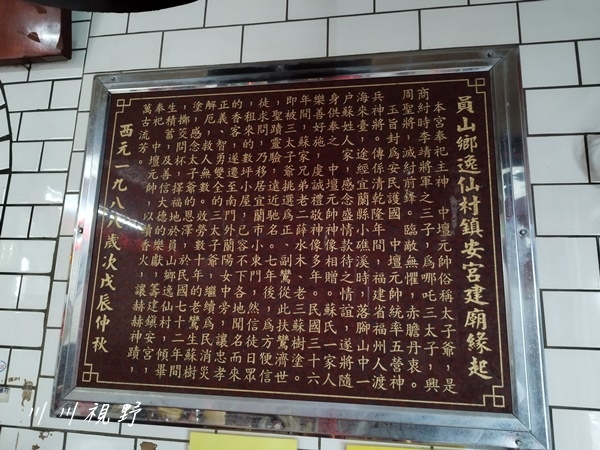 員山鄉逸仙村鎮安宮建廟緣起
本宮奉祀主神　中壇元帥俗稱太子爺，是
商紂時李靖將軍之三子，為哪吒三太子，興
周聖將，誠紂前鋒。臨敵無懼，赤膽丹衷。
玉旨封為安民護國　中壇元帥統率五營神
兵神將。傳係清乾隆年間，福建省福州人渡
海來臺，途經宜蘭縣小礁溪時，落腳山中一
户蘇姓人家，感念盛情款待之情誼，遂將隨
身供奉之　中壇元帥神像相贈。蘇氏一家人
樂善好施，虔誠禮敬神像多年。民國三十六
年間，蘇家兄弟老二薛水木、老三蘇樹塗。
即被三太子爺挑選為正、副鸞從此扶鸞濟世
，聖蹟靈驗，遠近馳名。七年後，為方便信
徒求問，乃移居宜蘭市小東門。然信徒日眾
，租來的數坪小屋，已容不下各地聞名而來
的香客，遂遷至南門外蘭陽女中旁，讓忠孝
正義、智勇雙全的三太子爺，繼續為民消災
解厄，救人無數。效勞數十年的老鸞生蘇樹
塗，感念太子爺的恩澤，於民國七十二年間
，擲茭杯問，擇福地於員山鄉逸仙村，傾畢
生積蓄及善信大德的樂獻，籌建鎮安宮，
奉祀　中壇元帥，以續香火，讓赫赫神蹟，
萬古流芳。
西元一九八八歲次戊辰仲秋
川川視野